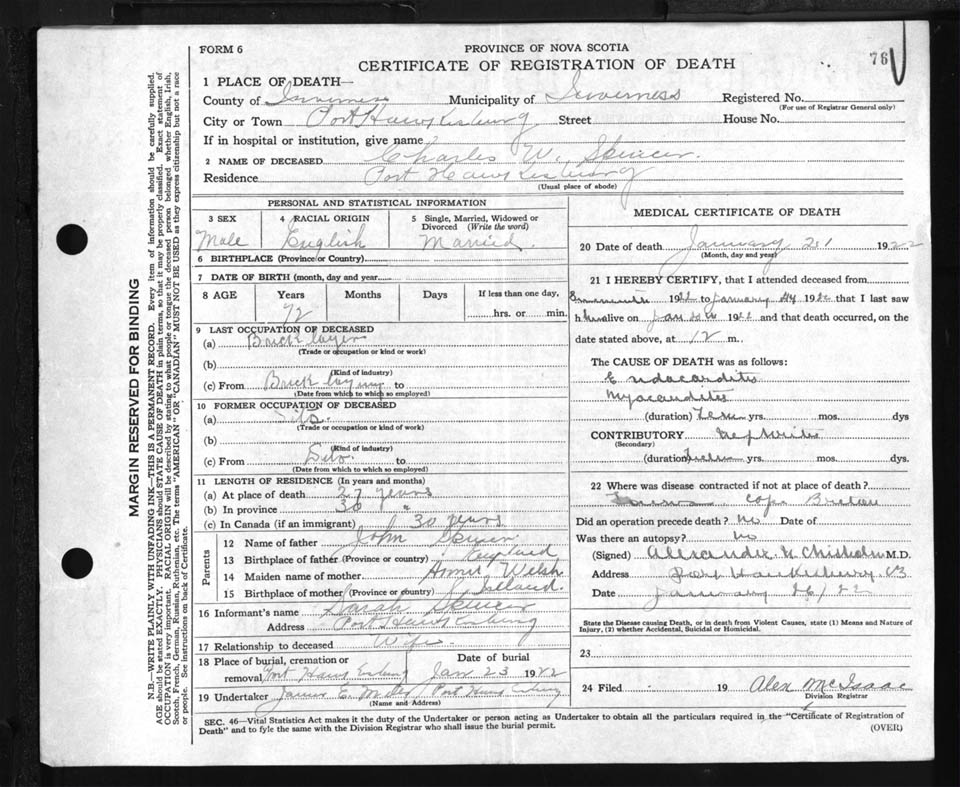 FORM 6
PROVINCE OF NOVA SCOTIA
CERTIFICATE OF REGISTRATION OF DEATH
76
1 PLACE OF DEATH—
County of Inverness Municipality of Inverness Registered No.
(For use of Registrar General only)
City or Town Port Hawkesbury Street House No.
If in hospital or institution, give name
2 NAME OF DECEASED Charles W. Spencer.
Residence Port Hawkesbury
(Usual place of abode)
PERSONAL AND STATISTICAL INFORMATION
3 SEX 4 RACIAL ORIGIN 5 Single, Married, Widowed or Divorced (Write the word)
Male English Married.
6 BIRTHPLACE (Province or Country)
7 DATE OF BIRTH (month, day and year
8 AGE Years Months Days If less than one day.
72 hrs. or min.
9 LAST OCCUPATION OF DECEASED
(a) Brick layer
(Trade or occupation or kind or work)
(b)
(Kind of industry)
(c) From Brick laying to
(Date from which to which so employed)
10 FORMER OCCUPATION OF DECEASED
(a)
(Trade or occupation or kind of work)
(b)
(Kind of industry)
(c) From to
(Date from which to which so employed)
11 LENGTH OF RESIDENCE (In years and months)
(a) At place of death 27 years
(b) In province 30 "
(c) In Canada (if an immigrant) 30 years
Parents
12 Name of father John Spencer
13 Birthplace of father (Province or country) England
14 Maiden name of mother Annie Welsh
15 Birthplace of mother (Province or country) Ireland.
16 Informant's name Sarah Spencer
Address Port Hawkesbury
17 Relationship to deceased Wife.
18 Place of burial, cremation or removal Port Hawkesbury Date of burial Jan 23 1922
19 Undertaker James E. Port Hawkesbury
(Name and Address)
MEDICAL CERTIFICATE OF DEATH
20 Date of death January 21 1922
(Month, day and year)
21 I HEREBY CERTIFY, that I attended deceased from
19 to January 19 that I last saw
h alive on Jan 19 and that death occurred, on
date stated above, at 12 m.
The CAUSE OF DEATH was as follows:
Endocarditis
Myocarditis
(duration) yrs. mos. dys
CONTRIBUTORY Nephritis
(Secondary)
(duration) yrs. mos. dys.
22 Where was disease contracted if not at place of death?
Cape Breton
Did an operation precede death? No Date of
Was there an autopsy? No
(Signed) Alexander Chisholm M.D.
Address Port Hawkesbury CB
Date January 26/22
State the Disease causing Death, or in death from Violent Causes, state (1) Means and Nature of
Injury, (2) whether Accidental, Suicidal or Homicidal.
23
24 Filed 19 Alex McIsaac
Division Registrar
SEC. 46—Vital Statistics Act makes it the duty of the Undertaker or person acting as Undertaker to obtain all the particulars required in the "Certificate of Registration of
Death" and to fyle the same with the Division Registrar who shall issue the burial permit.
(OVER)
MARGIN RESERVED FOR BINDING
N.B.—WRITE PLAINLY WITH UNFADING INK—THIS IS A PERMANENT RECORD. Every item of information should be carefully supplied.
AGE should be stated EXACTLY. PHYSICIANS should STATE CAUSE OF DEATH in plain terms, so that it may be properly classified. Exact statement of
OCCUPATION is very important. RACIAL ORIGIN will be described by stating to what people or tongue the deceased person belonged whether English, Irish,
Scotch, French, German, Russian, Ruthenian, etc. The terms "AMERICAN" OR "CANADIAN" MUST NOT BE USED as they express citizenship but not a race
or people. See instructions on back of Certificate.